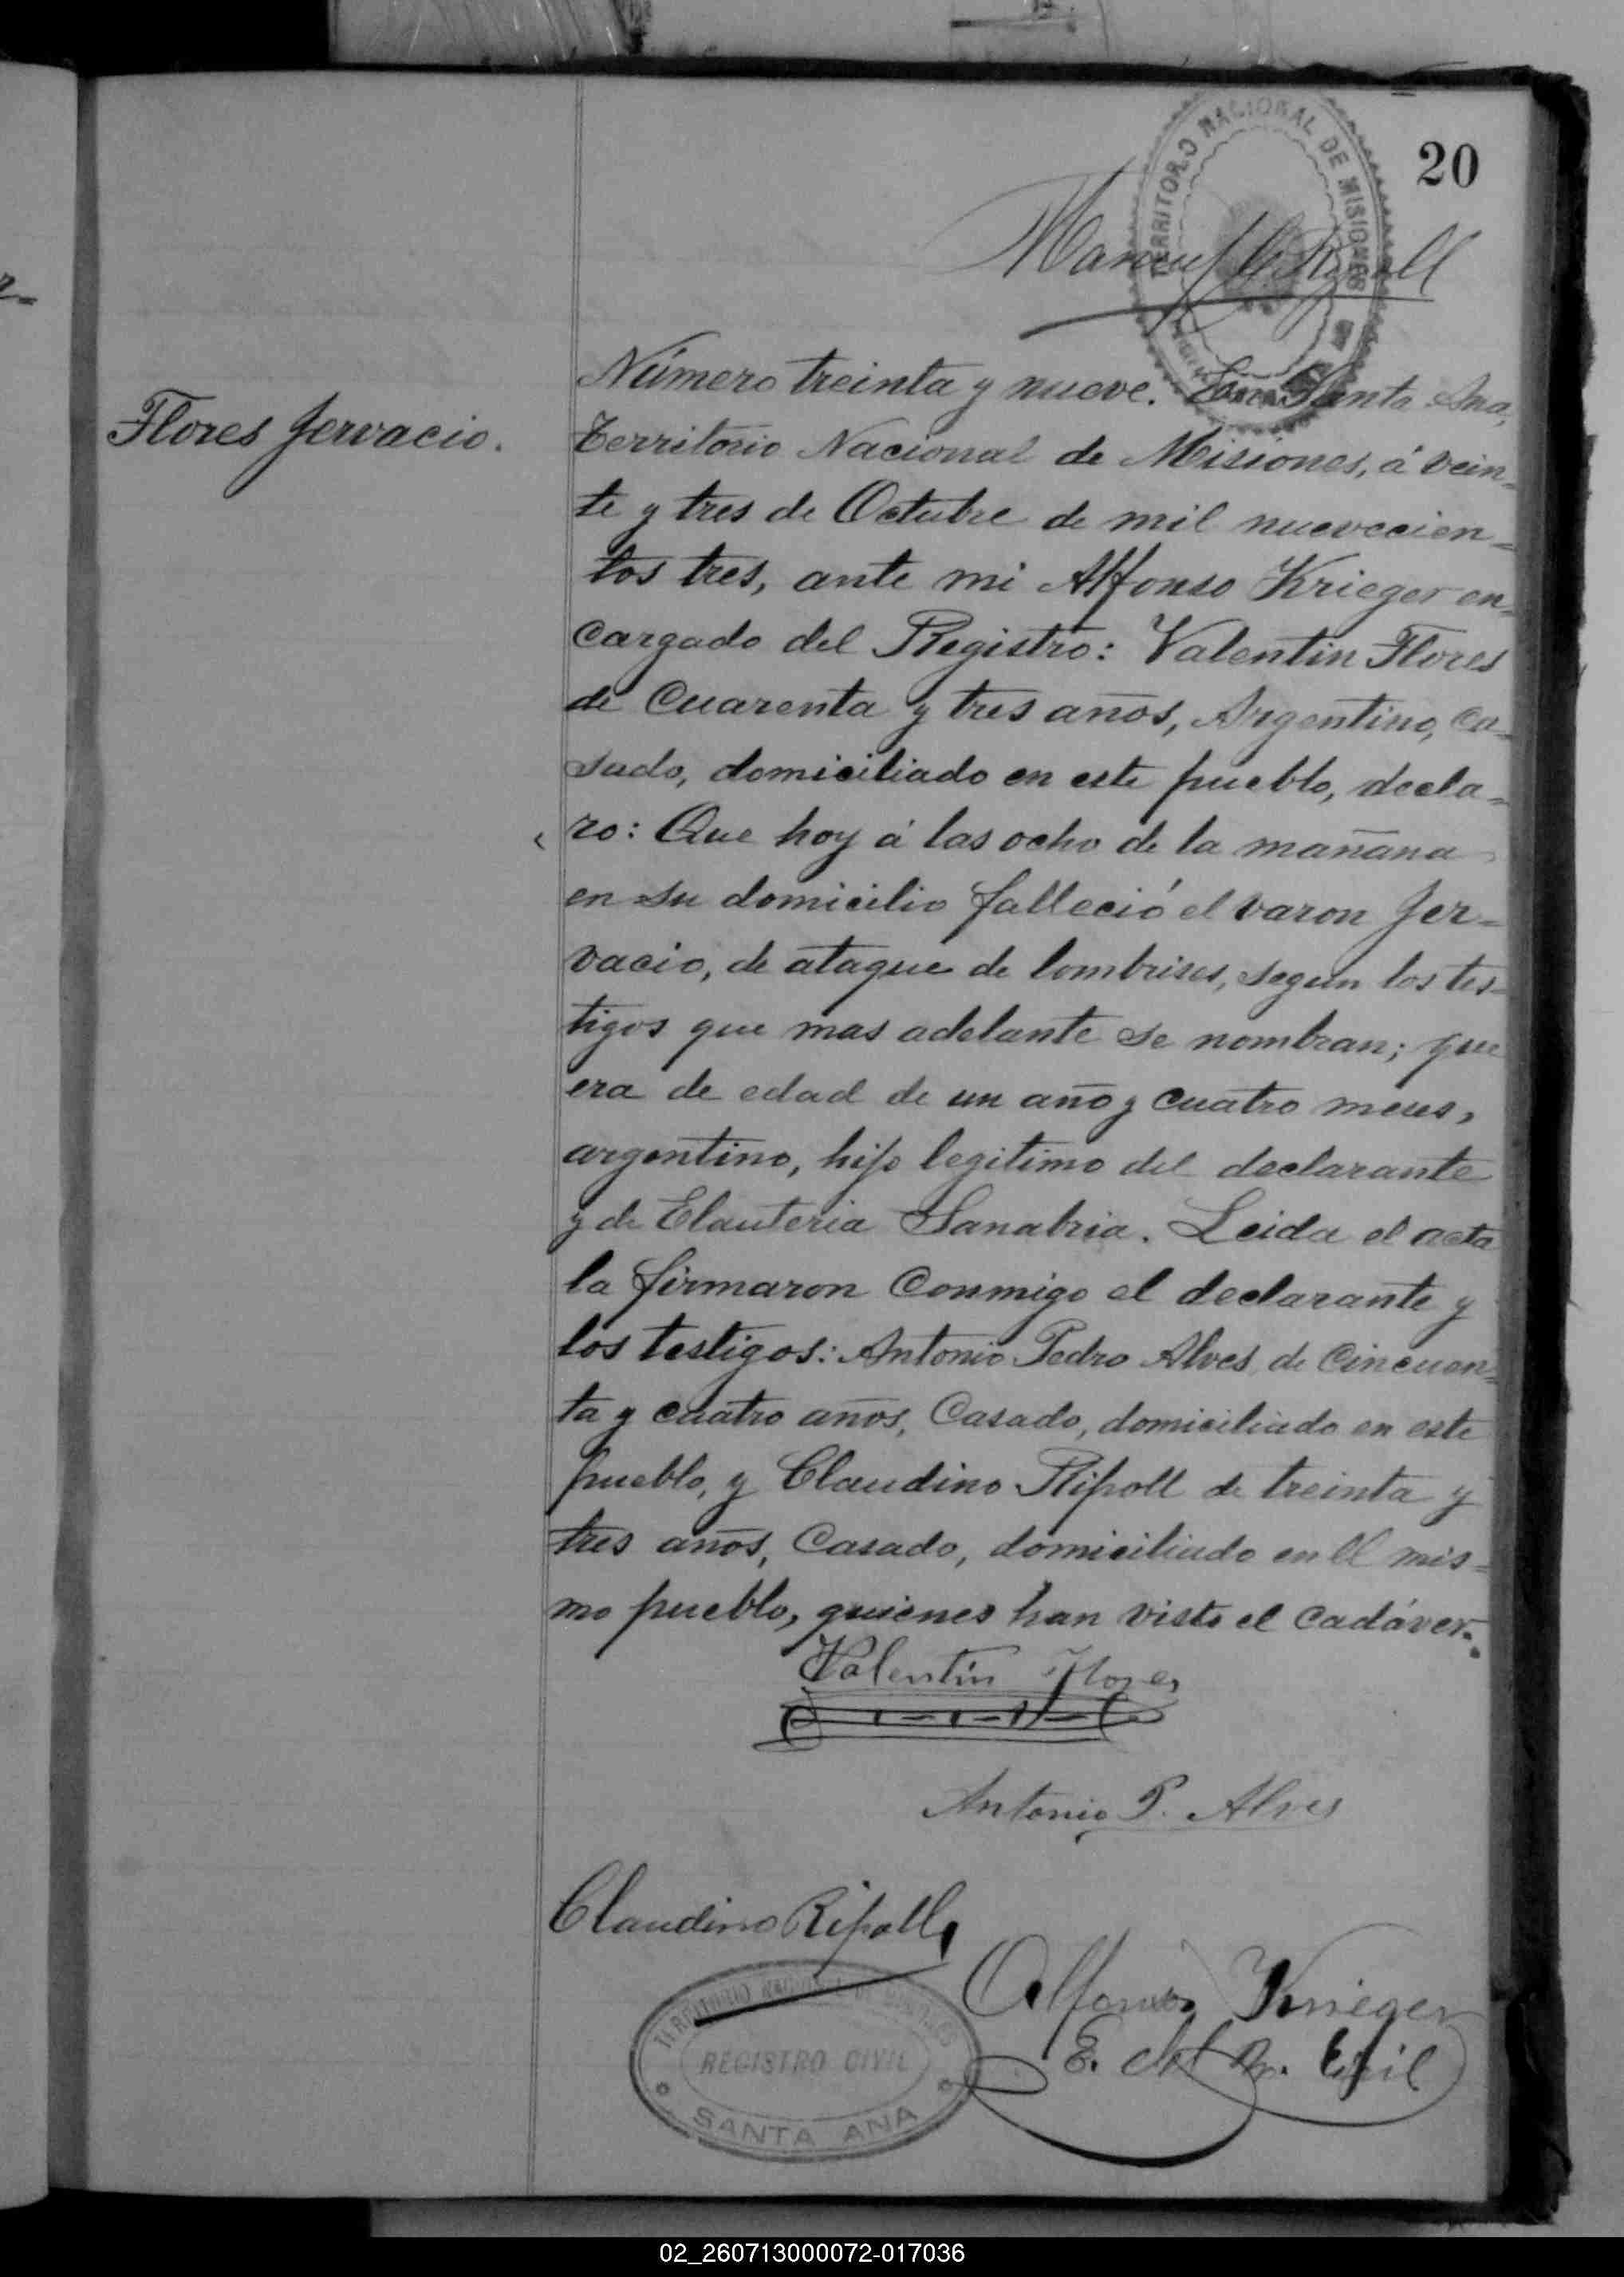 20
TERRITORIO NACIONAL DE MISIONES
Manuel Ripoll
Flores Jervacio.
Número treinta y nueve. En Santa Ana,
Territorio Nacional de Misiones, á vein-
te y tres de Octubre de mil nuevecien-
tos tres, ante mi Alfonso Krieger en-
cargado del Registro: Valentin Flores
de Cuarenta y tres años, Argentino, Ca-
sado, domiciliado en este pueblo, decla-
ro: Que hoy á las ocho de la mañana
en su domicilio falleció el varon Jer-
vacio, de ataque de lombrises, segun los tes-
tigos que mas adelante se nombran; que
era de edad de un año y cuatro meses,
argentino, hijo legitimo del declarante
y de Elauteria Sanabria. Leida el acta
la firmaron Conmigo el declarante y
los testigos: Antonio Pedro Alves, de Cincuen-
ta y cuatro años, Casado, domiciliado en este
pueblo, y Claudino Ripoll de treinta y
tres años, Casado, domiciliado en el mis-
mo pueblo, quienes han visto el cadáver.
Valentín Flores
Antonio P. Alves
Claudino Ripoll
Alfonso Krieger
E. del R. Civil
TERRITORIO NACIONAL DE MISIONES
REGISTRO CIVIL
SANTA ANA
02_260713000072-017036